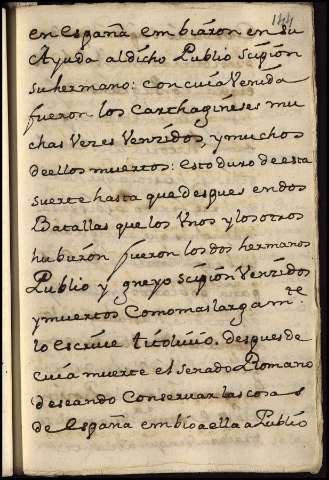 144
en españa embiáron en su
Ayuda aldicho Publio scipion
su hermano: con cuia Venida
fueron los Carthagineses mu
chas Veces Venzidos, y muchos
deellos muertos: esto duro de esta
suerte hasta que despues en dos
Batallas que los Vnos y los otros
hubieron fueron los dos hermanos
Publio y gneyo scipion Venzidos
y muertos Como mas larga mte
lo escriue titoliuio. despues de
cuia muerte el senado Romano
deseando Conservar las cosas
de españa embio a ella a Publio